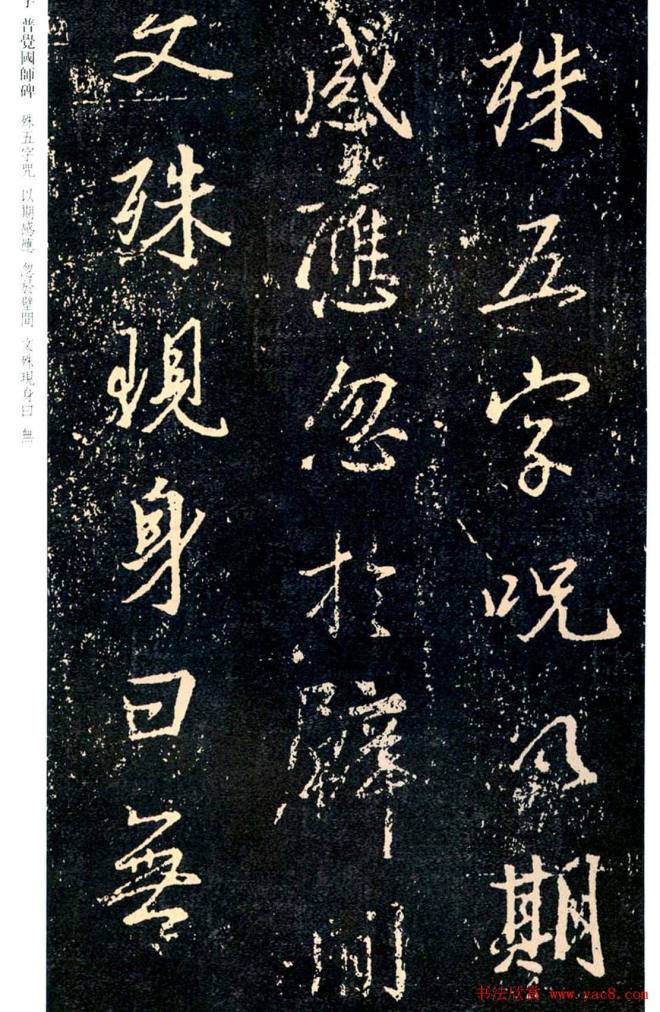 殊五字呪以期
感應忽於壁間
文殊現身曰無
字 普覺國師碑 殊五字咒 以期感應 忽於壁間 文殊現身曰 無
书法欣赏 www.yac8.com